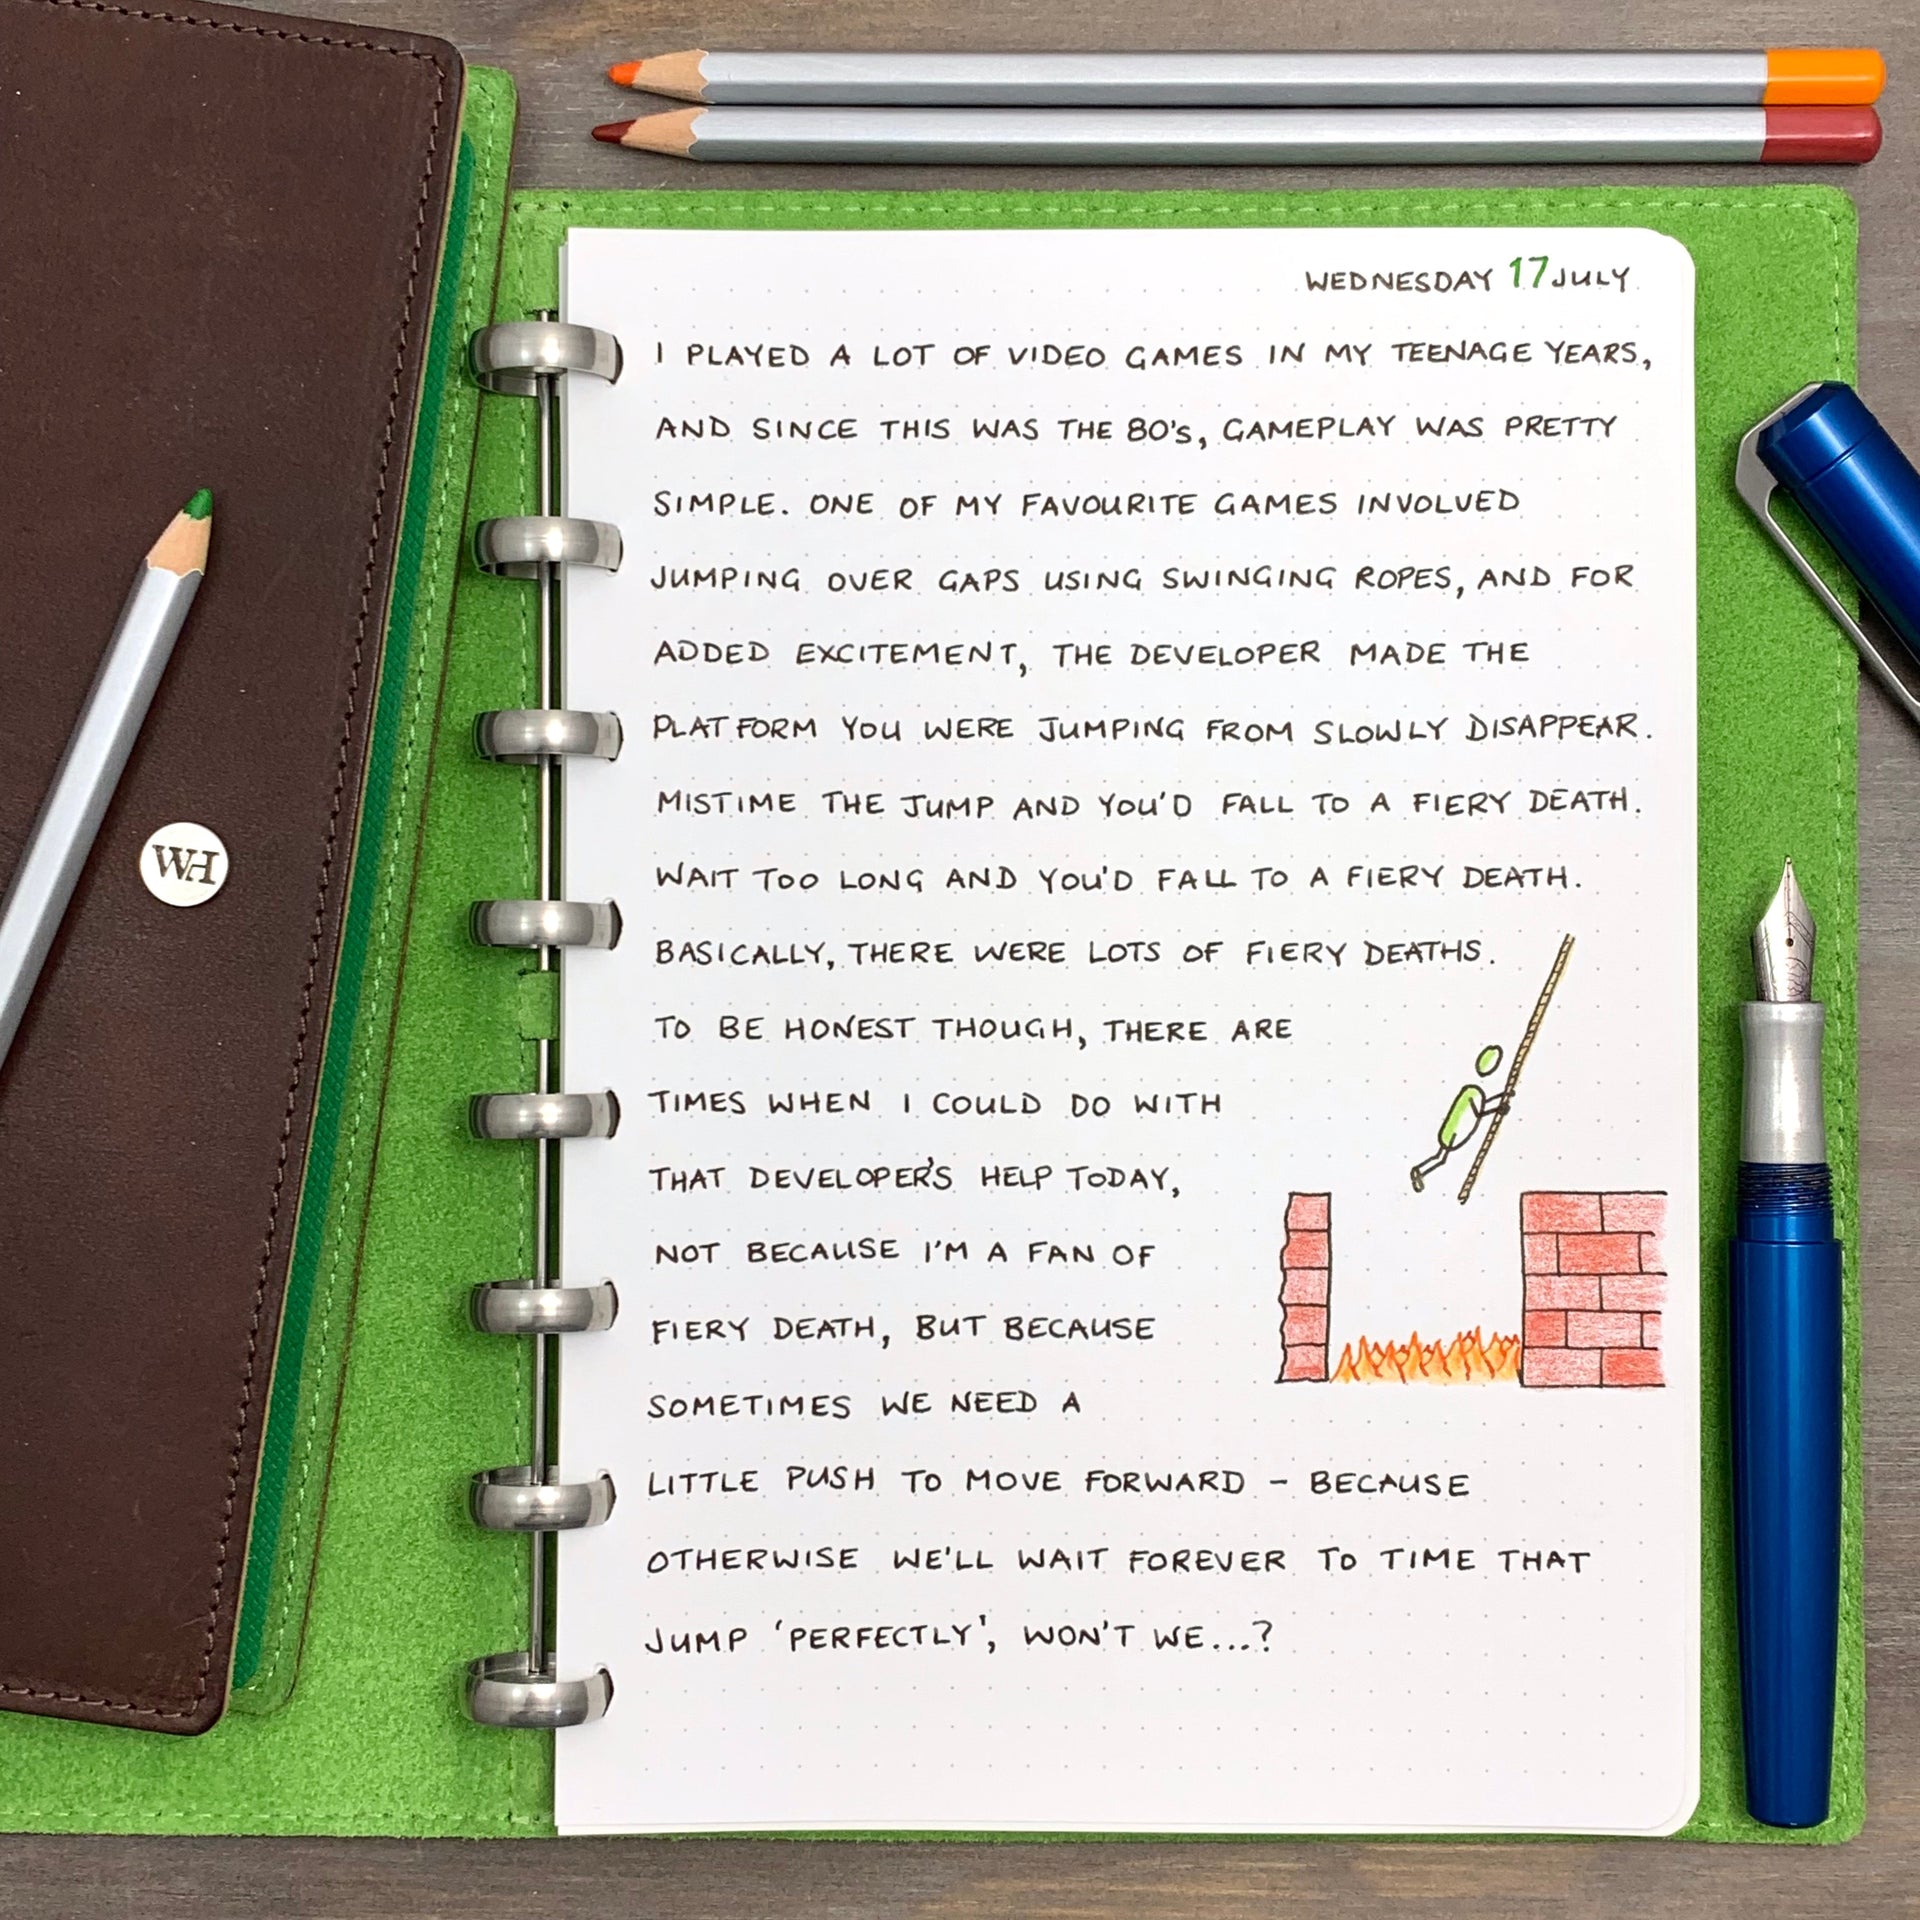 WH
WEDNESDAY 17 JULY
I PLAYED A LOT OF VIDEO GAMES IN MY TEENAGE YEARS,
AND SINCE THIS WAS THE 80's, GAMEPLAY WAS PRETTY
SIMPLE. ONE OF MY FAVOURITE GAMES INVOLVED
JUMPING OVER GAPS USING SWINGING ROPES, AND FOR
ADDED EXCITEMENT, THE DEVELOPER MADE THE
PLATFORM YOU WERE JUMPING FROM SLOWLY DISAPPEAR.
MISTIME THE JUMP AND YOU'D FALL TO A FIERY DEATH.
WAIT TOO LONG AND YOU'D FALL TO A FIERY DEATH.
BASICALLY, THERE WERE LOTS OF FIERY DEATHS.
TO BE HONEST THOUGH, THERE ARE
TIMES WHEN I COULD DO WITH
THAT DEVELOPER'S HELP TODAY,
NOT BECAUSE I'M A FAN OF
FIERY DEATH, BUT BECAUSE
SOMETIMES WE NEED A
LITTLE PUSH TO MOVE FORWARD - BECAUSE
OTHERWISE WE'LL WAIT FOREVER TO TIME THAT
JUMP 'PERFECTLY', WON'T WE...?